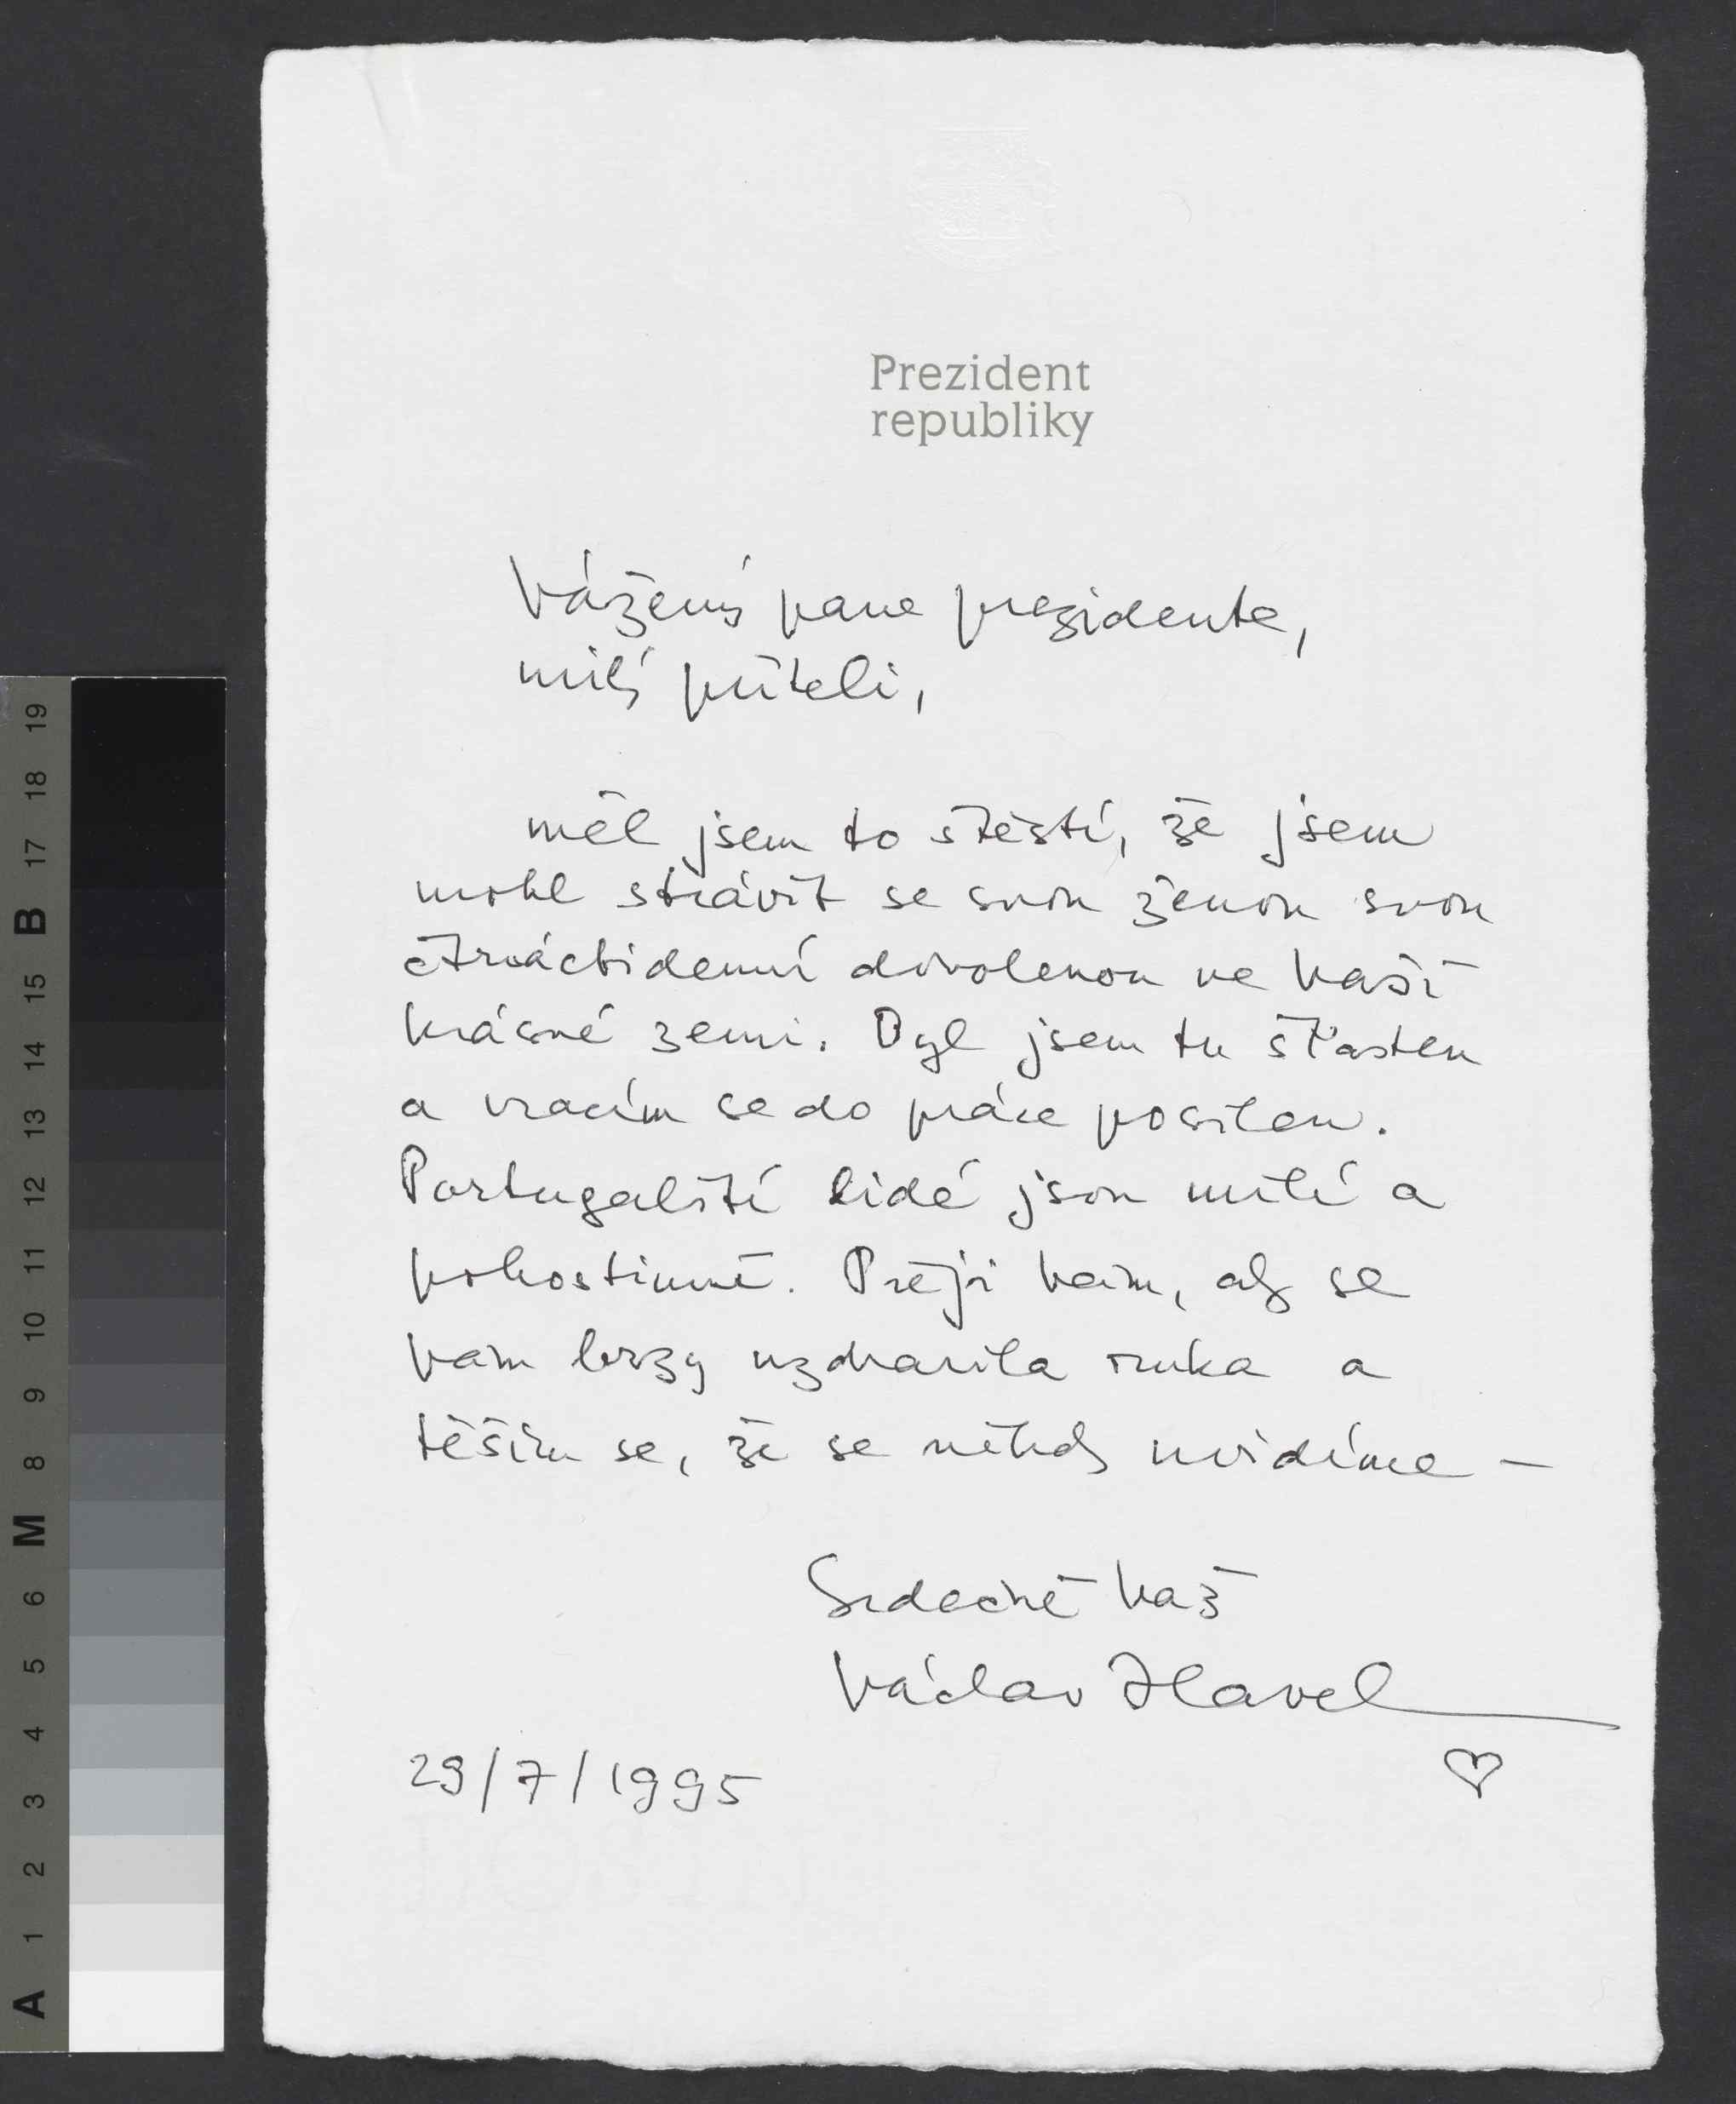 Prezident
republiky
Vážený pane prezidente,
milý příteli,
měl jsem to štěstí, že jsem
mohl strávit se svou ženou svou
čtrnáctidenní dovolenou ve Vaší
krásné zemi. Byl jsem tu šťasten
a vracím se do práce posilen.
Portugalští lidé jsou milí a
pohostinní. Přeji Vám, aby se
Vám brzy uzdravila ruka a
těším se, že se někdy uvidíme –
Srdečně Váš
Václav Havel
29/7/1995
19
18
17
B
15
14
13
12
11
10
9
8
M
6
5
4
3
2
1
A